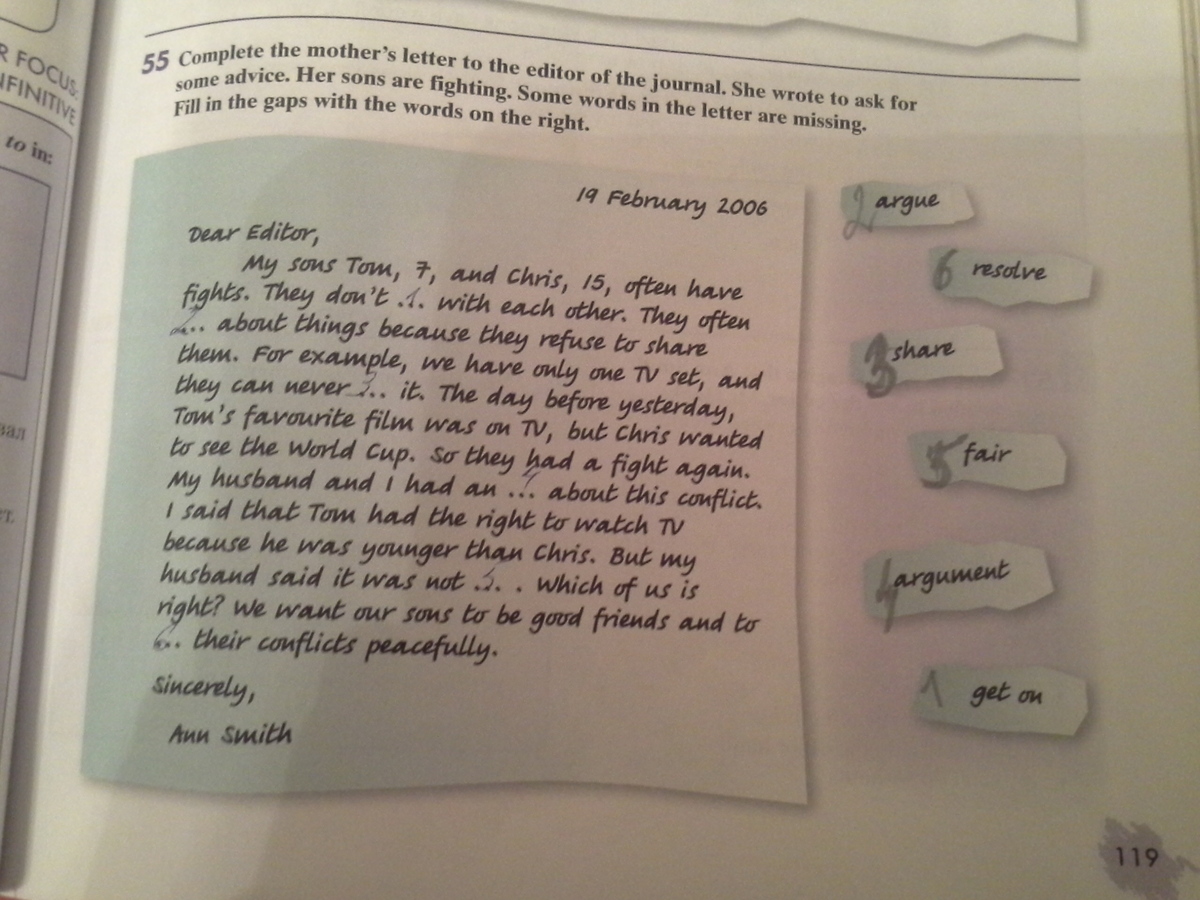 R FOCUS:
NFINITIVE
to in:
55 Complete the mother's letter to the editor of the journal. She wrote to ask for
some advice. Her sons are fighting. Some words in the letter are missing.
Fill in the gaps with the words on the right.
19 February 2006
Dear Editor,
My sons Tom, 7, and Chris, 15, often have
fights. They don't .1. with each other. They often
2.. about things because they refuse to share
them. For example, we have only one TV set, and
they can never 3.. it. The day before yesterday,
Tom's favourite film was on TV, but Chris wanted
to see the World Cup. So they had a fight again.
My husband and I had an 4... about this conflict.
I said that Tom had the right to watch TV
because he was younger than Chris. But my
husband said it was not .5. . Which of us is
right? We want our sons to be good friends and to
6.. their conflicts peacefully.
Sincerely,
Ann Smith
2 argue
6 resolve
3 share
5 fair
4 argument
1 get on
вал
ет.
119